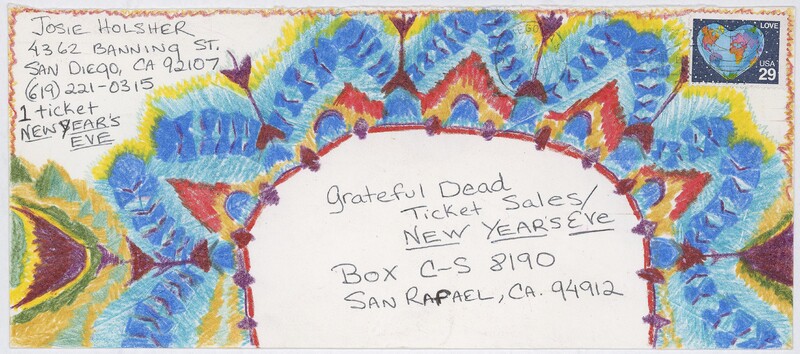 Josie Holsher
4362 Banning St.
San Diego, CA 92107
(619) 221-0315
1 ticket
New Year's
Eve
LOVE
USA
29
Grateful Dead
Ticket Sales/
New Year's Eve
Box C-S 8190
San Rapael, CA. 94912